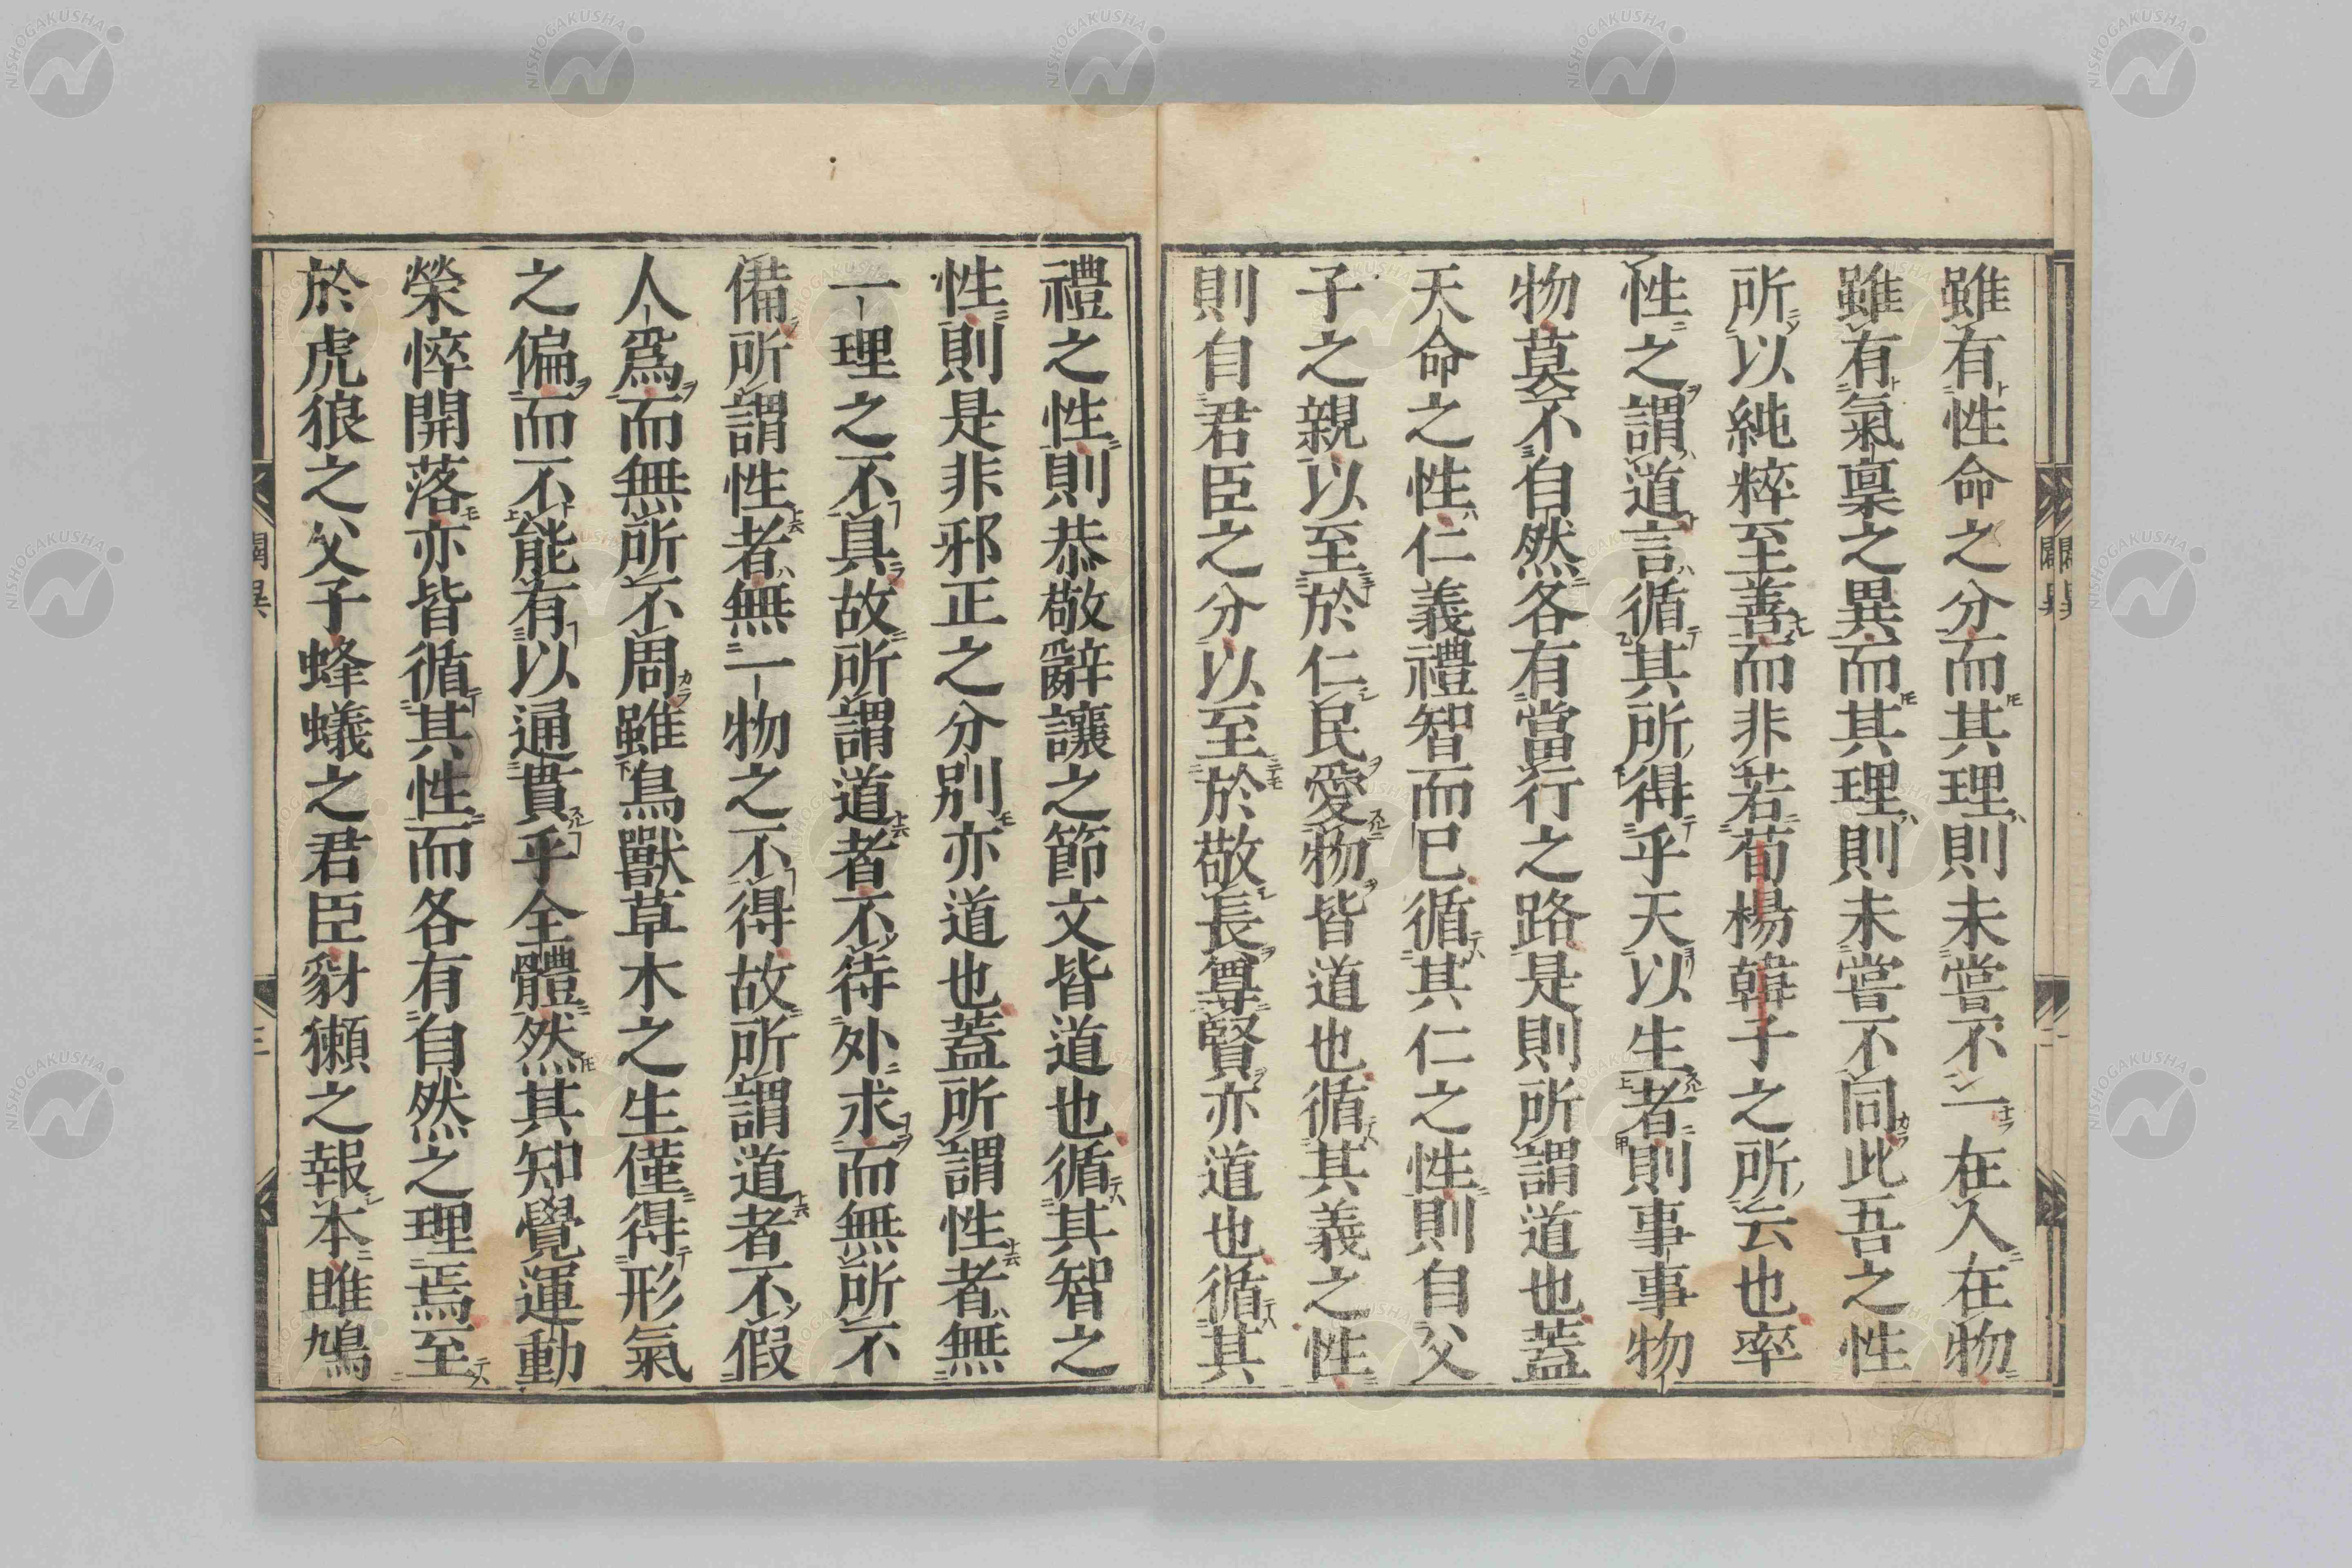 雖有性命之分而其理則未嘗不一在人在物
雖有氣稟之異而其理則未嘗不同此吾之性
所以純粹至善而非若荀楊韓子之所云也率
性之謂道言循其所得乎天以生者則事事物
物莫不自然各有當行之路是則所謂道也蓋
天命之性仁義禮智而已循其仁之性則自父
子之親以至於仁民愛物皆道也循其義之性
則自君臣之分以至於敬長尊賢亦道也循其
禮之性則恭敬辭讓之節文皆道也循其智之
性則是非邪正之分別亦道也蓋所謂性者無
一理之不具故所謂道者不待外求而無所不
備所謂性者無一物之不得故所謂道者不假
人爲而無所不周雖鳥獸草木之生僅得形氣
之偏而不能有以通貫乎全體然其知覺運動
榮悴開落亦皆循其性而各有自然之理焉至
於虎狼之父子蜂蟻之君臣豺獺之報本雎鳩
闢異
三
NISHOGAKUSHA